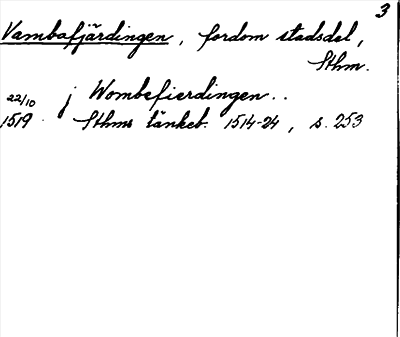 3
Vambafjärdingen, fordom stadsdel,
Sthm.
22/10 j Wombefierdingen..
1519 Sthms tänkeb. 1514-24, s. 253